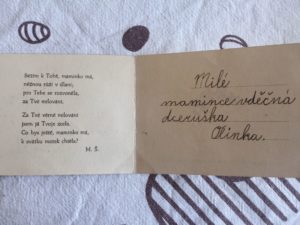 Beznu k Tobě, maminko má,
něžnou růži v dlani,
pro Tebe se rozvoněla,
za Tvé milování.
Za Tvé věrné milování
jsem já Tvoje zcela.
Co bys ještě, maminko má,
k svátku matek chtěla?
M. Š.
Milé
mamince vděčná
dceruška
Olinka.